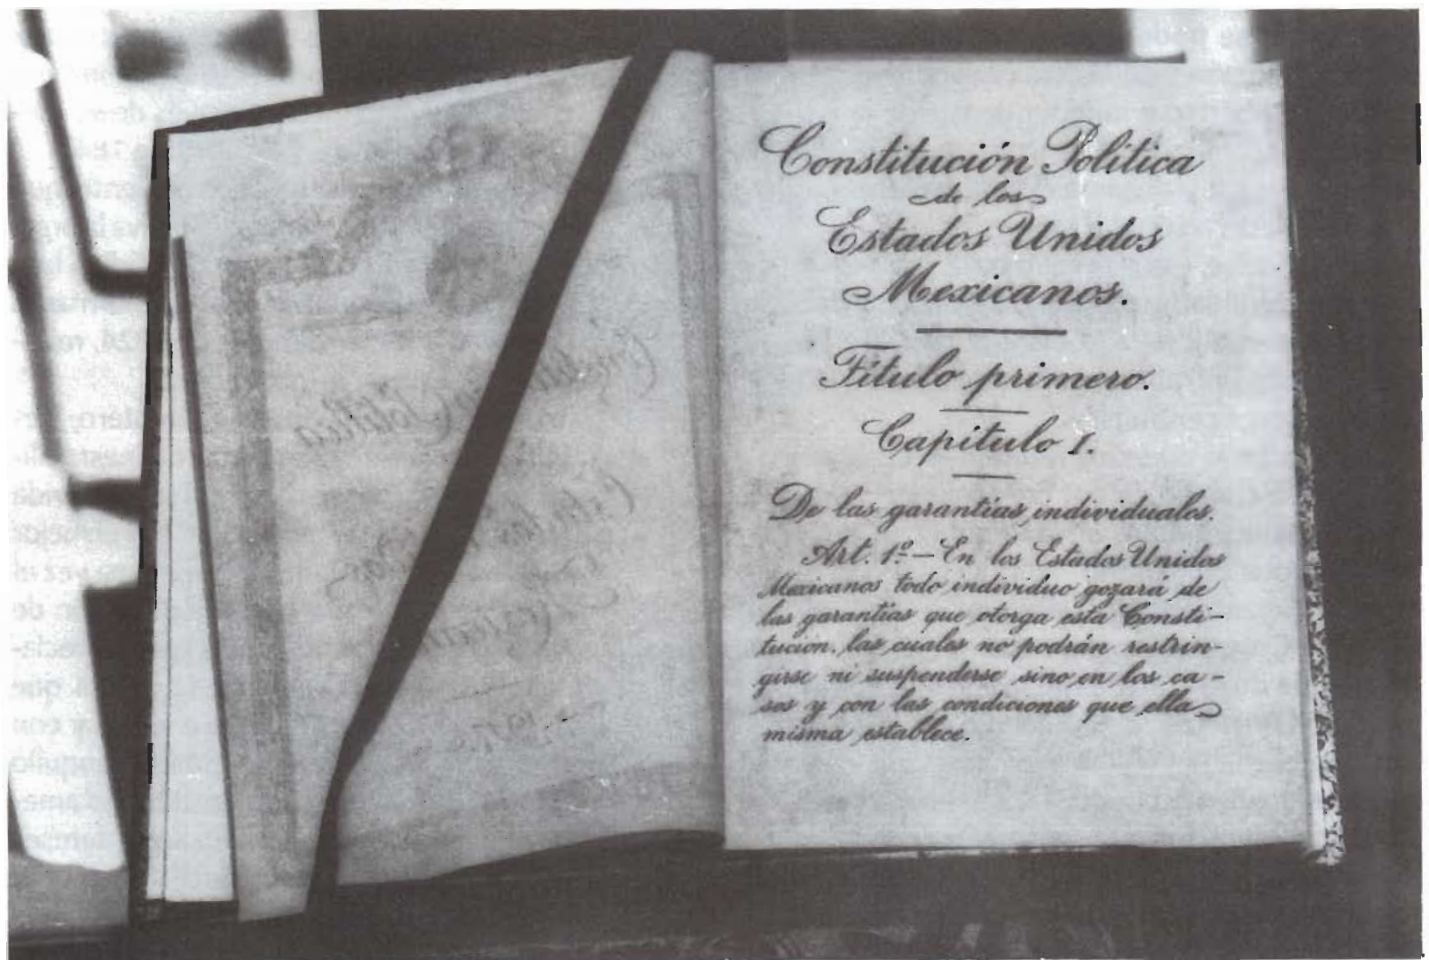 Constitución Política
de los
Estados Unidos
Mexicanos.
Título primero.
Capítulo I.
De las garantías individuales.
Art. 1º—En los Estados Unidos
Mexicanos todo individuo gozará de
las garantías que otorga esta Consti-
tución, las cuales no podrán restrin-
girse ni suspenderse sino en los ca-
sos y con las condiciones que ella
misma establece.